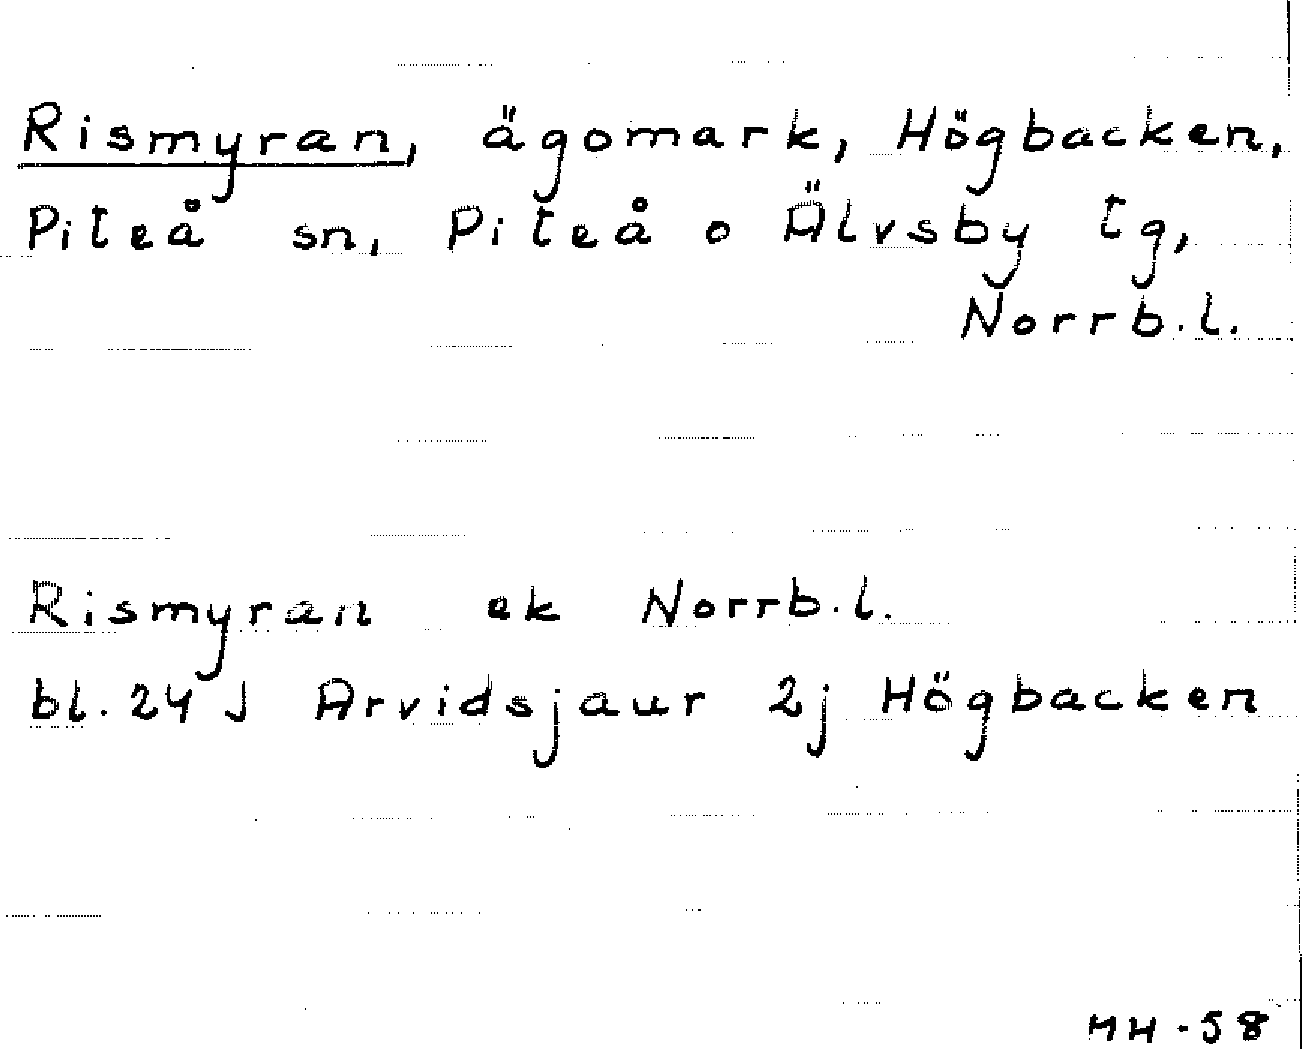 Rismyran, ägomark, Högbacken,
Piteå sn, Piteå o Älvsby tg,
Norrb.l.
Rismyran ek Norrb.l.
bl. 24 J Arvidsjaur 2j Högbacken
MH-58